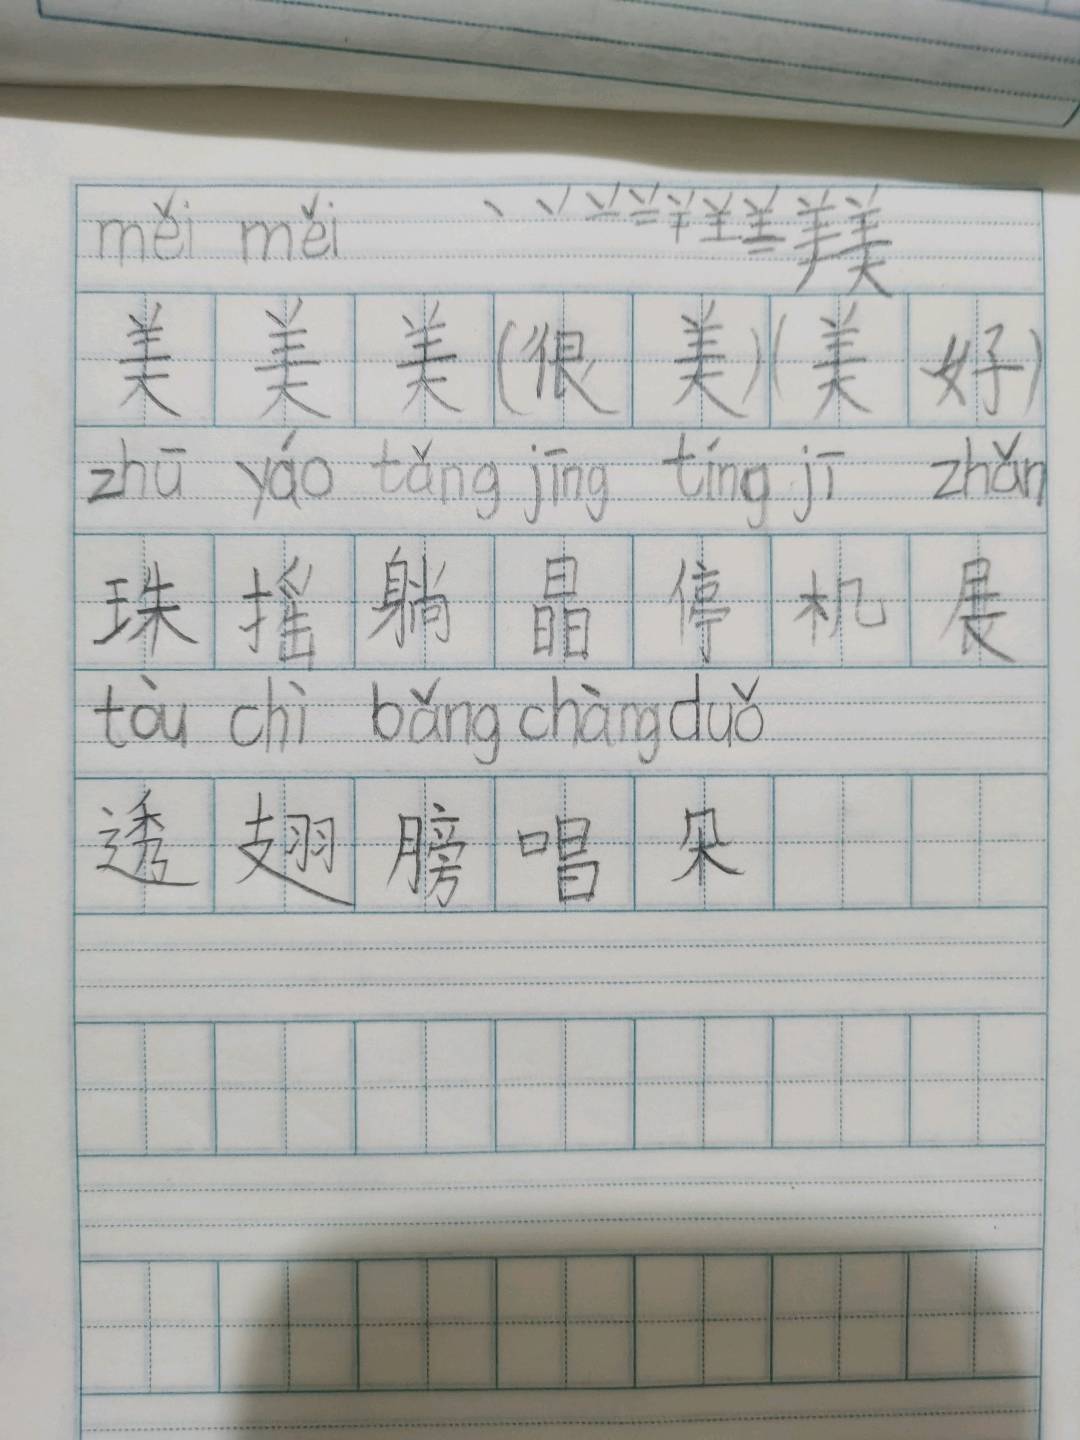 měi měi 丶 丷 䒑 美
美 美 美 (很 美) (美 好)
zhū yáo tǎng jīng tíng jī zhǎn
珠 摇 躺 晶 停 机 展
tòu chì bǎng chàng duǒ
透 翅 膀 唱 朵